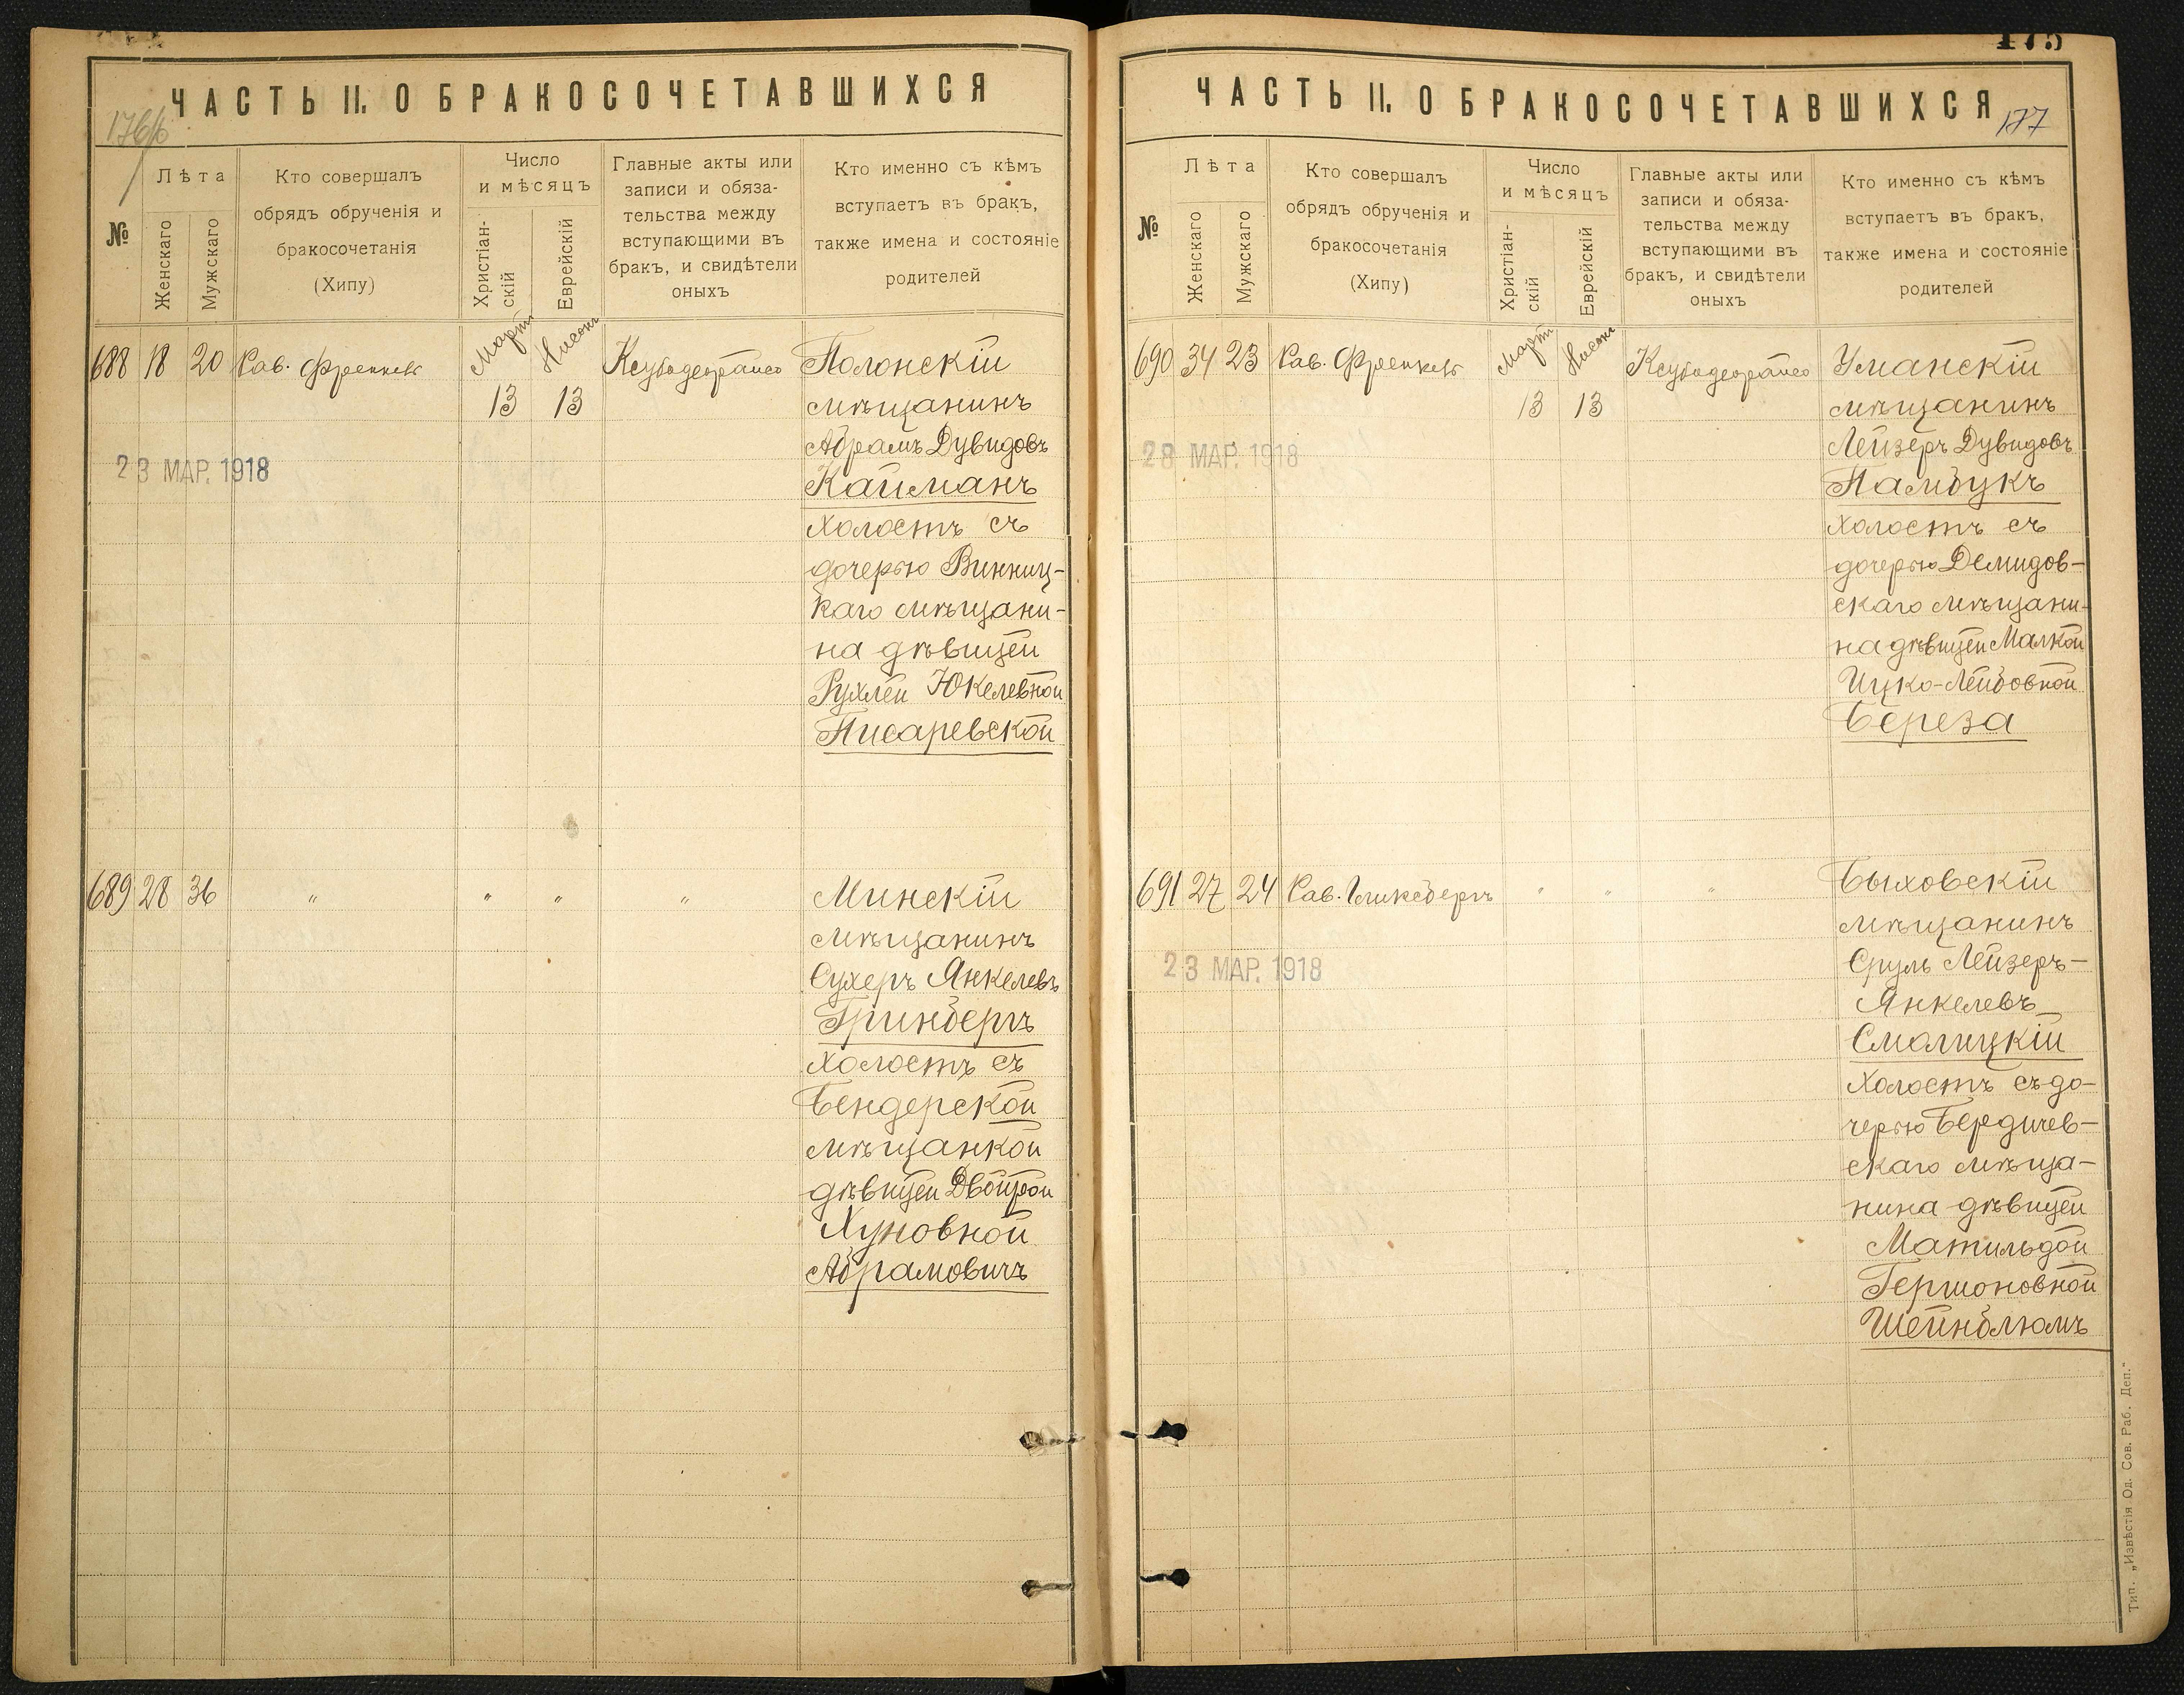 ЧАСТЬ II. О БРАКОСОЧЕТАВШИХСЯ
176/б
№
Лѣта
Женскаго
Мужскаго
Кто совершалъ
обрядъ обрученія и
бракосочетанія
(Хипу)
Число
и мѣсяцъ
Христіан-
скій
Еврейскій
Главные акты или
записи и обяза-
тельства между
вступающими въ
бракъ, и свидѣтели
оныхъ
Кто именно съ кѣмъ
вступаетъ въ бракъ,
также имена и состояніе
родителей
688 18 20 Рав. Френкель Мартъ Нисонъ
13 13
Полонскій
мѣщанинъ
Абрамъ Дувидовъ
Кайманъ
холостъ съ
дочерью Винниц-
каго мѣщани-
на дѣвицей
Рухлей Юкелевной
Писаревской
23 МАР. 1918
689 28 36 " " " "
Минскій
мѣщанинъ
Сухеръ Янкелевъ
Гринбергъ
холостъ съ
Бендерской
мѣщанкой
дѣвицей Двойрой
Хуновной
Абрамовичъ
175
ЧАСТЬ II. О БРАКОСОЧЕТАВШИХСЯ
177
№
Лѣта
Женскаго
Мужскаго
Кто совершалъ
обрядъ обрученія и
бракосочетанія
(Хипу)
Число
и мѣсяцъ
Христіан-
скій
Еврейскій
Главные акты или
записи и обяза-
тельства между
вступающими въ
бракъ, и свидѣтели
оныхъ
Кто именно съ кѣмъ
вступаетъ въ бракъ,
также имена и состояніе
родителей
690 34 23 Рав. Френкель Мартъ Нисонъ
13 13
Уманскій
мѣщанинъ
Лейзеръ Дувидовъ
Памбукъ
холостъ съ
дочерью Демидов-
скаго мѣщани-
на дѣвицей Малкой
Ицко-Лейбовной
Береза
28 МАР. 1918
691 27 24 Рав. Гликсбергъ " " "
Быховскій
мѣщанинъ
Сруль Лейзеръ-
Янкелевъ
Смолицкій
холостъ съ до-
черью Бердичев-
скаго мѣща-
нина дѣвицей
Матильдой
Гершоновной
Шейнблюмъ
23 МАР. 1918
Тип. „Извѣстія Од. Сов. Раб. Деп."